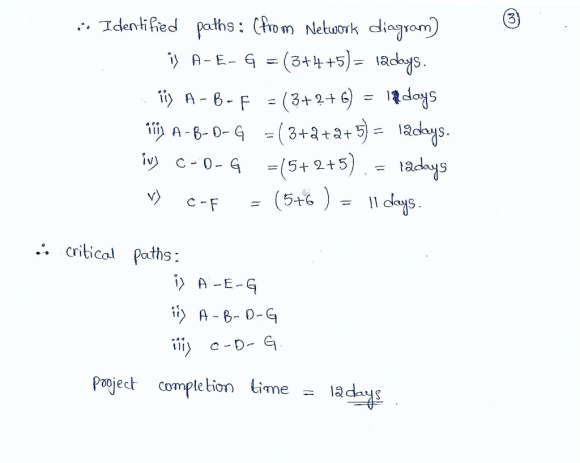 ③
∴ Identified paths: (from Network diagram)
i) A-E-G = (3+4+5) = 12days.
ii) A-B-F = (3+2+6) = 11days
iii) A-B-D-G = (3+2+2+5) = 12days.
iv) C-D-G = (5+2+5) = 12days
v) C-F = (5+6) = 11 days.
∴ critical paths:
i) A-E-G
ii) A-B-D-G
iii) C-D-G.
Project completion time = 12days.